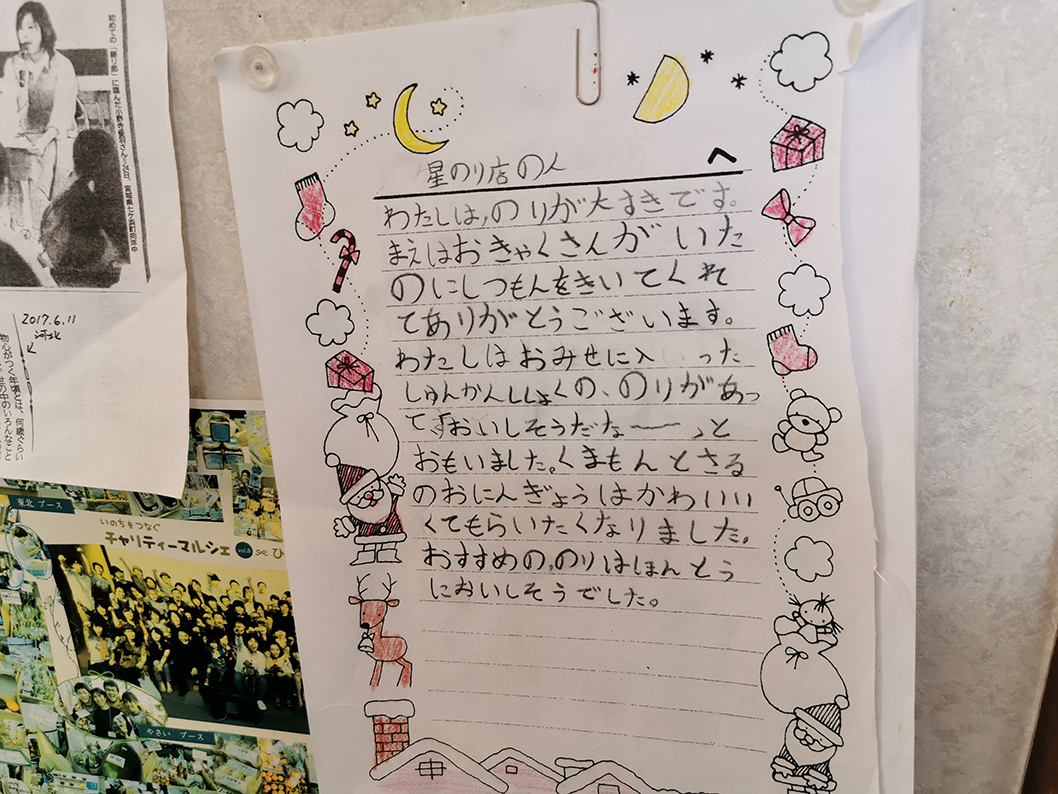 初めての「語り部」に臨んだ小野寺愛羽さん=24日、宮城県七ケ浜町向洋中
2017.6.11
河北
物心がつく年頃とは、何歳ぐらい
世の中のいろんなこと
星のり店の人 へ
わたしは,のりが大すきです。
まえはおきゃくさんがいた
のにしつもんをきいてくれ
てありがとうございます。
わたしはおみせに入った
しゅんかんししょくの、のりがあっ
て、「おいしそうだな〜〜」と
おもいました。くまもんとさる
のおにんぎょうはかわいい
くてもらいたくなりました。
おすすめの,のりはほんとう
においしそうでした。
東北 ブース
いのちをつなぐ
チャリティーマルシェ vol.8 se ひ
やさい ブース